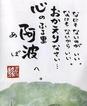 なにもないがいい
なにもないらいい
おかえりなさい…
心のふる里
阿波へ。
あば